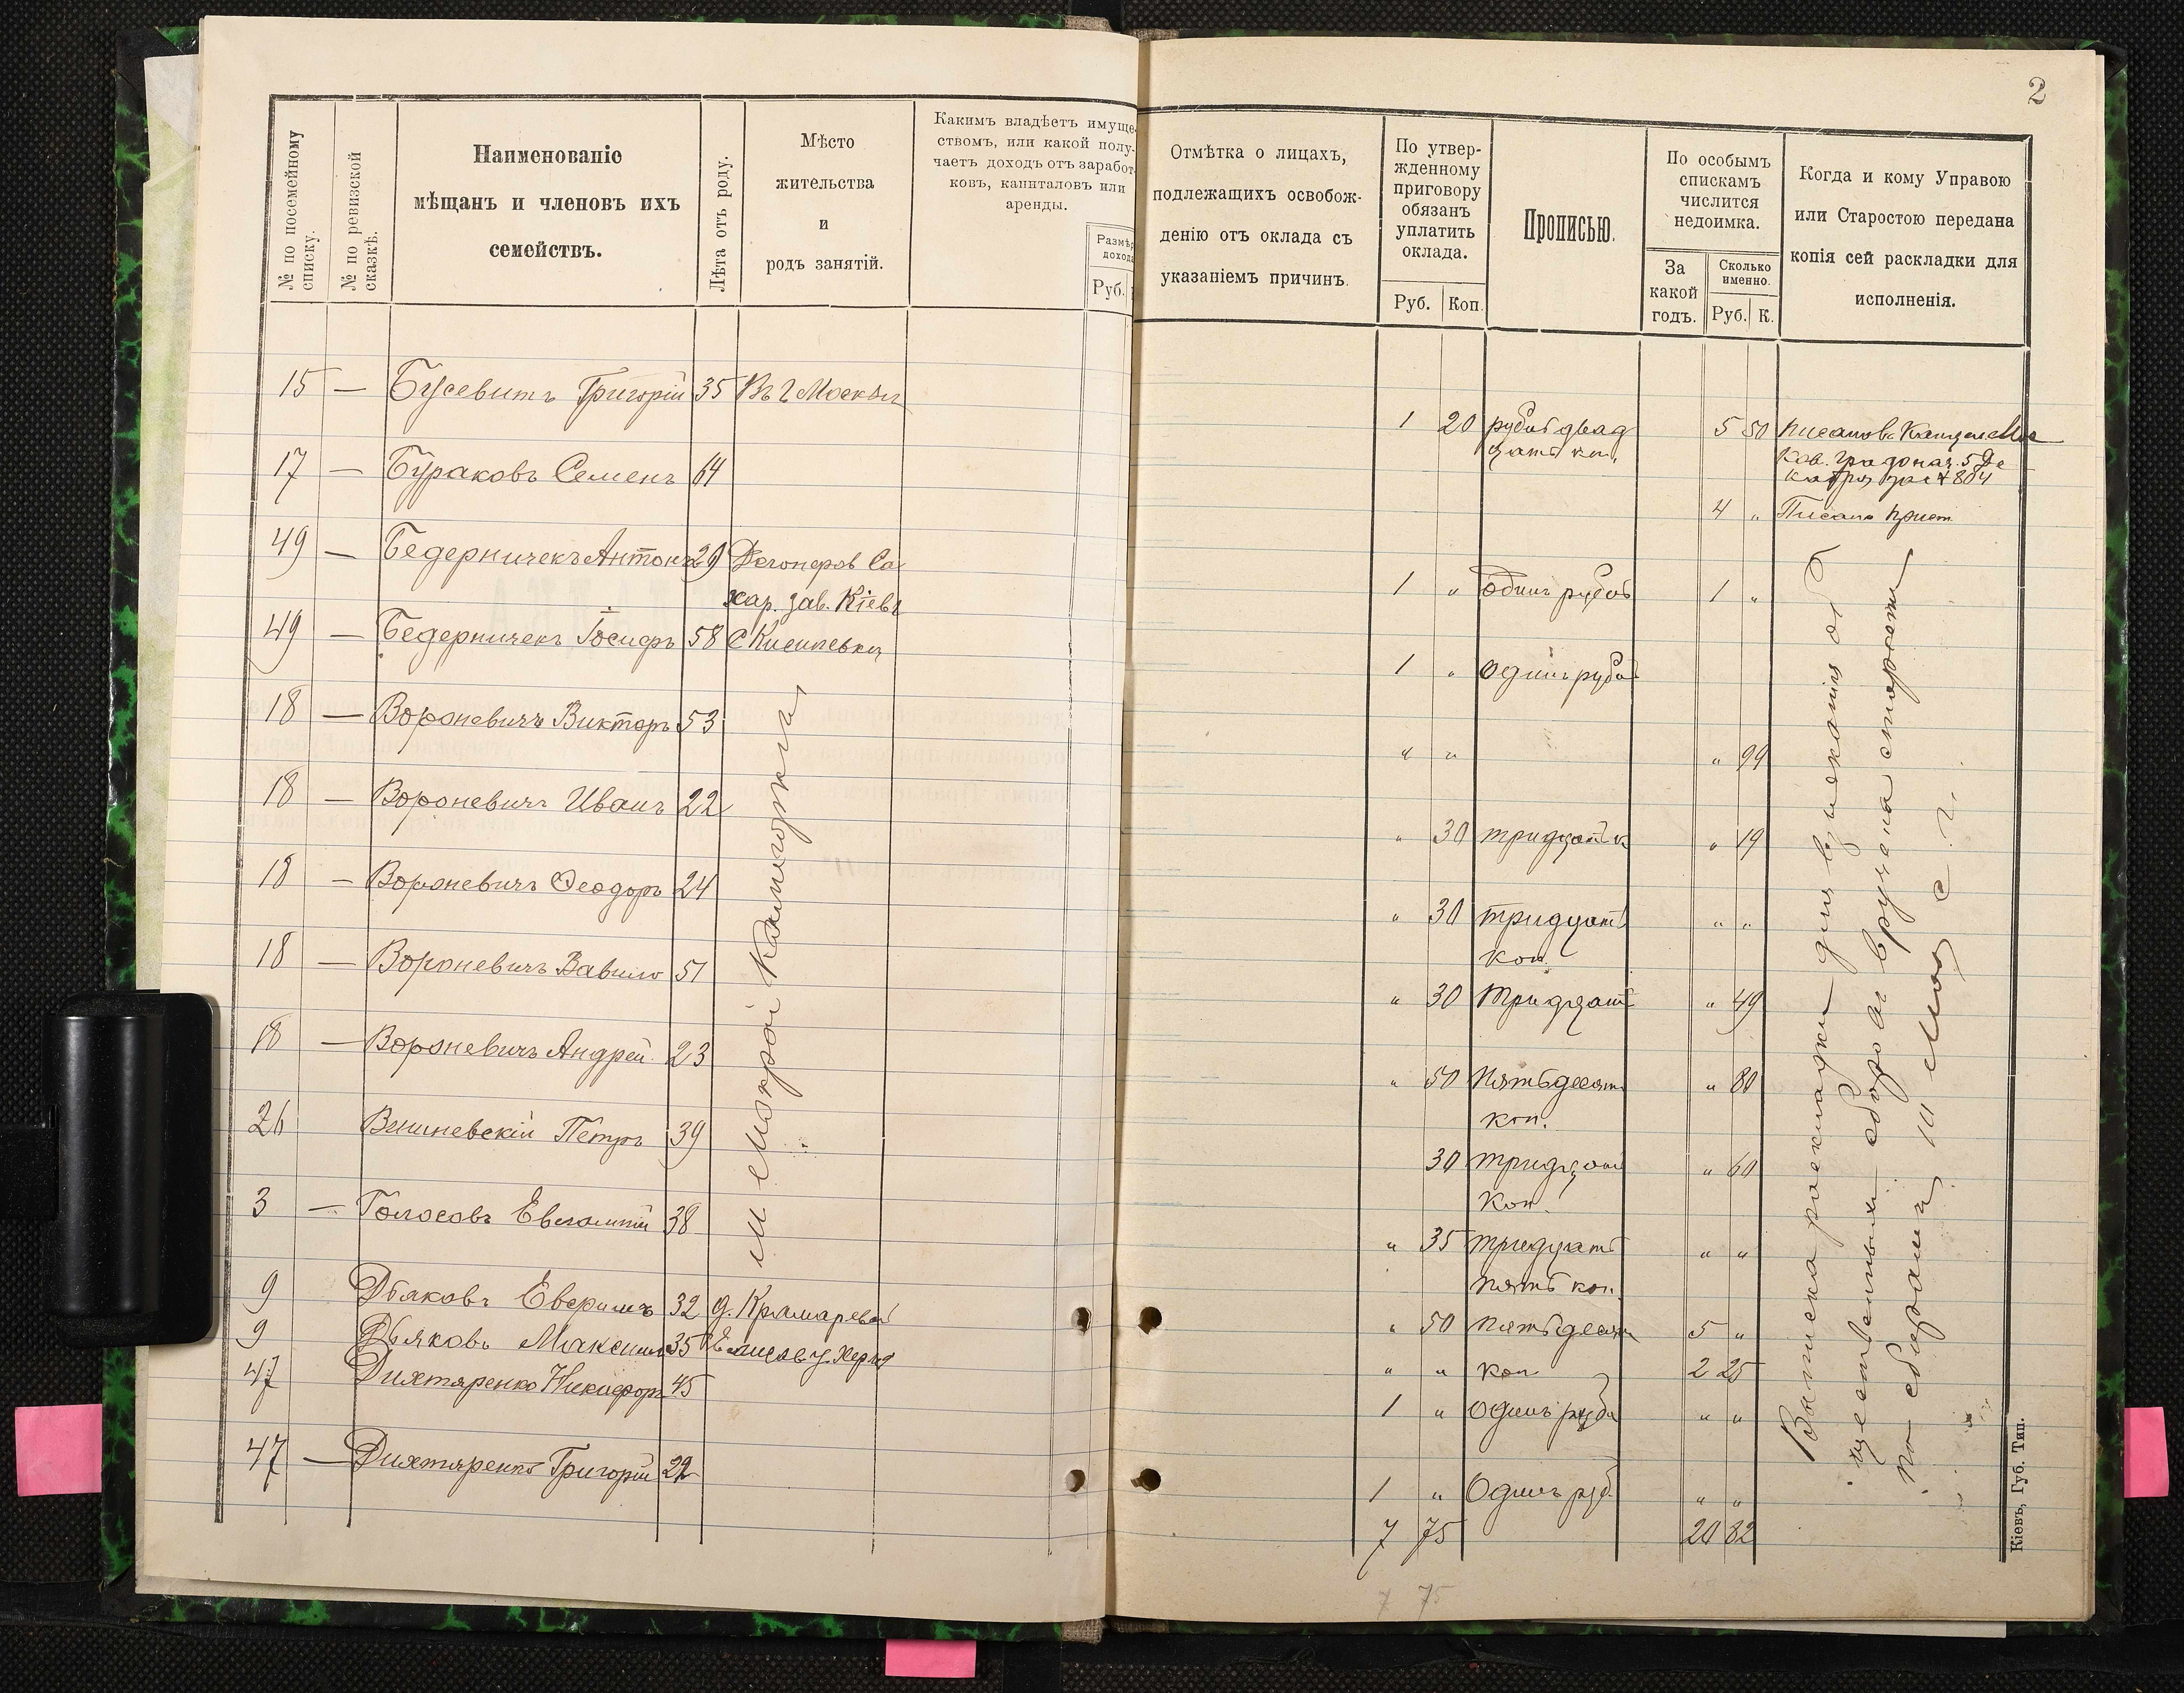 2
№ по посемейному списку.
№ по ревизской сказкѣ.
Наименованіе
мѣщанъ и членовъ ихъ
семействъ.
Лѣта отъ роду.
Мѣсто
жительства
и
родъ занятій.
Какимъ владѣетъ имуще-
ствомъ, или какой полу-
чаетъ доходъ отъ заработ-
ковъ, капиталовъ или
аренды.
Размѣръ
дохода
Руб.
Отмѣтка о лицахъ,
подлежащихъ освобож-
денію отъ оклада съ
указаніемъ причинъ.
По утвер-
жденному
приговору
обязанъ
уплатить
оклада.
Руб. Коп.
Прописью.
По особымъ
спискамъ
числится
недоимка.
За
какой
годъ.
Сколько
именно.
Руб. К.
Когда и кому Управою
или Старостою передана
копія сей раскладки для
исполненія.
15 — Бусевитъ Григорій 35 Въ г Москвѣ
1 20 рубль двад
цать коп. 5 50
17 — Бураковъ Семенъ 64
4 „ Писано прист
49 — Бедерничекъ Антонъ 29 Са
хар. зав. Кіевъ
1 „ одинъ рубль 1 „
49 — Бедерничекъ Іосифъ 58
1 „ одинъ рубль
18 — Вороневичъ Викторъ 53
„ „ „ 99
18 — Вороневичъ Иванъ 22
„ 30 тридцать к „ 19
18 — Вороневичъ Феодоръ 24
„ 30 тридцать
коп. „ „
18 — Вороневичъ Вавило 51
„ 30 тридцать „ 49
18 — Вороневичъ Андрей 23
„ 50 пятьдесят
коп. „ 80
26 Вишневскій Петръ 39
30 тридцать
коп. „ 60
3 — Голосовъ 38
„ 35 тридцать
пять коп. „ „
9 Дьяковъ 32
„ 50 пятьдесят 5 „
9 Дьяковъ Максимъ 35
„ „ коп 2 25
47 Дихтяренко Никифоръ 45
1 „ Одинъ рубль „ „
47 — Дихтяренко Григорій 22
1 „ Одинъ руб. „ „
7 75 20 82
7 75
м Мокрой Калигорки
Выписка раскладки для взысканія об
щественныхъ сборовъ вручена старостѣ
по сбираню, 10 Мая с. г.
Кіевъ, Губ. Тип.